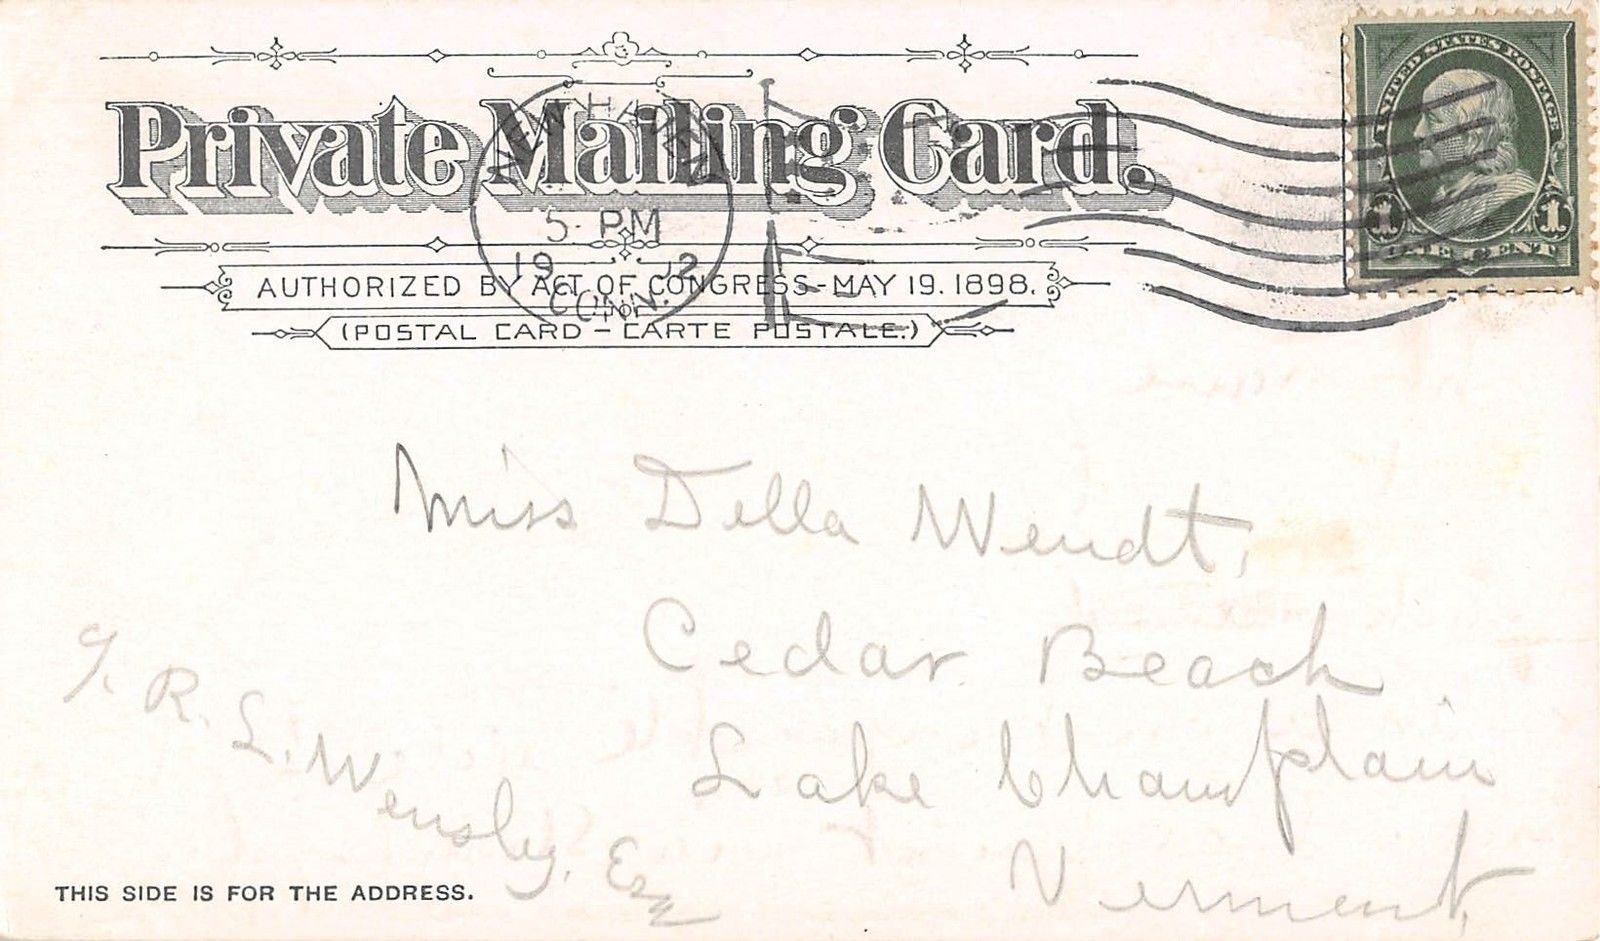 Private Mailing Card.
NEW HAVEN
5 PM
19 02
CONN.
UNITED STATES POSTAGE
1 1
ONE CENT
AUTHORIZED BY ACT OF CONGRESS-MAY 19. 1898.
(POSTAL CARD - CARTE POSTALE.)
Miss Della Wendt,
Cedar Beach
Lake Champlain
Vermont,
R. L. Wensley, Esq
THIS SIDE IS FOR THE ADDRESS.